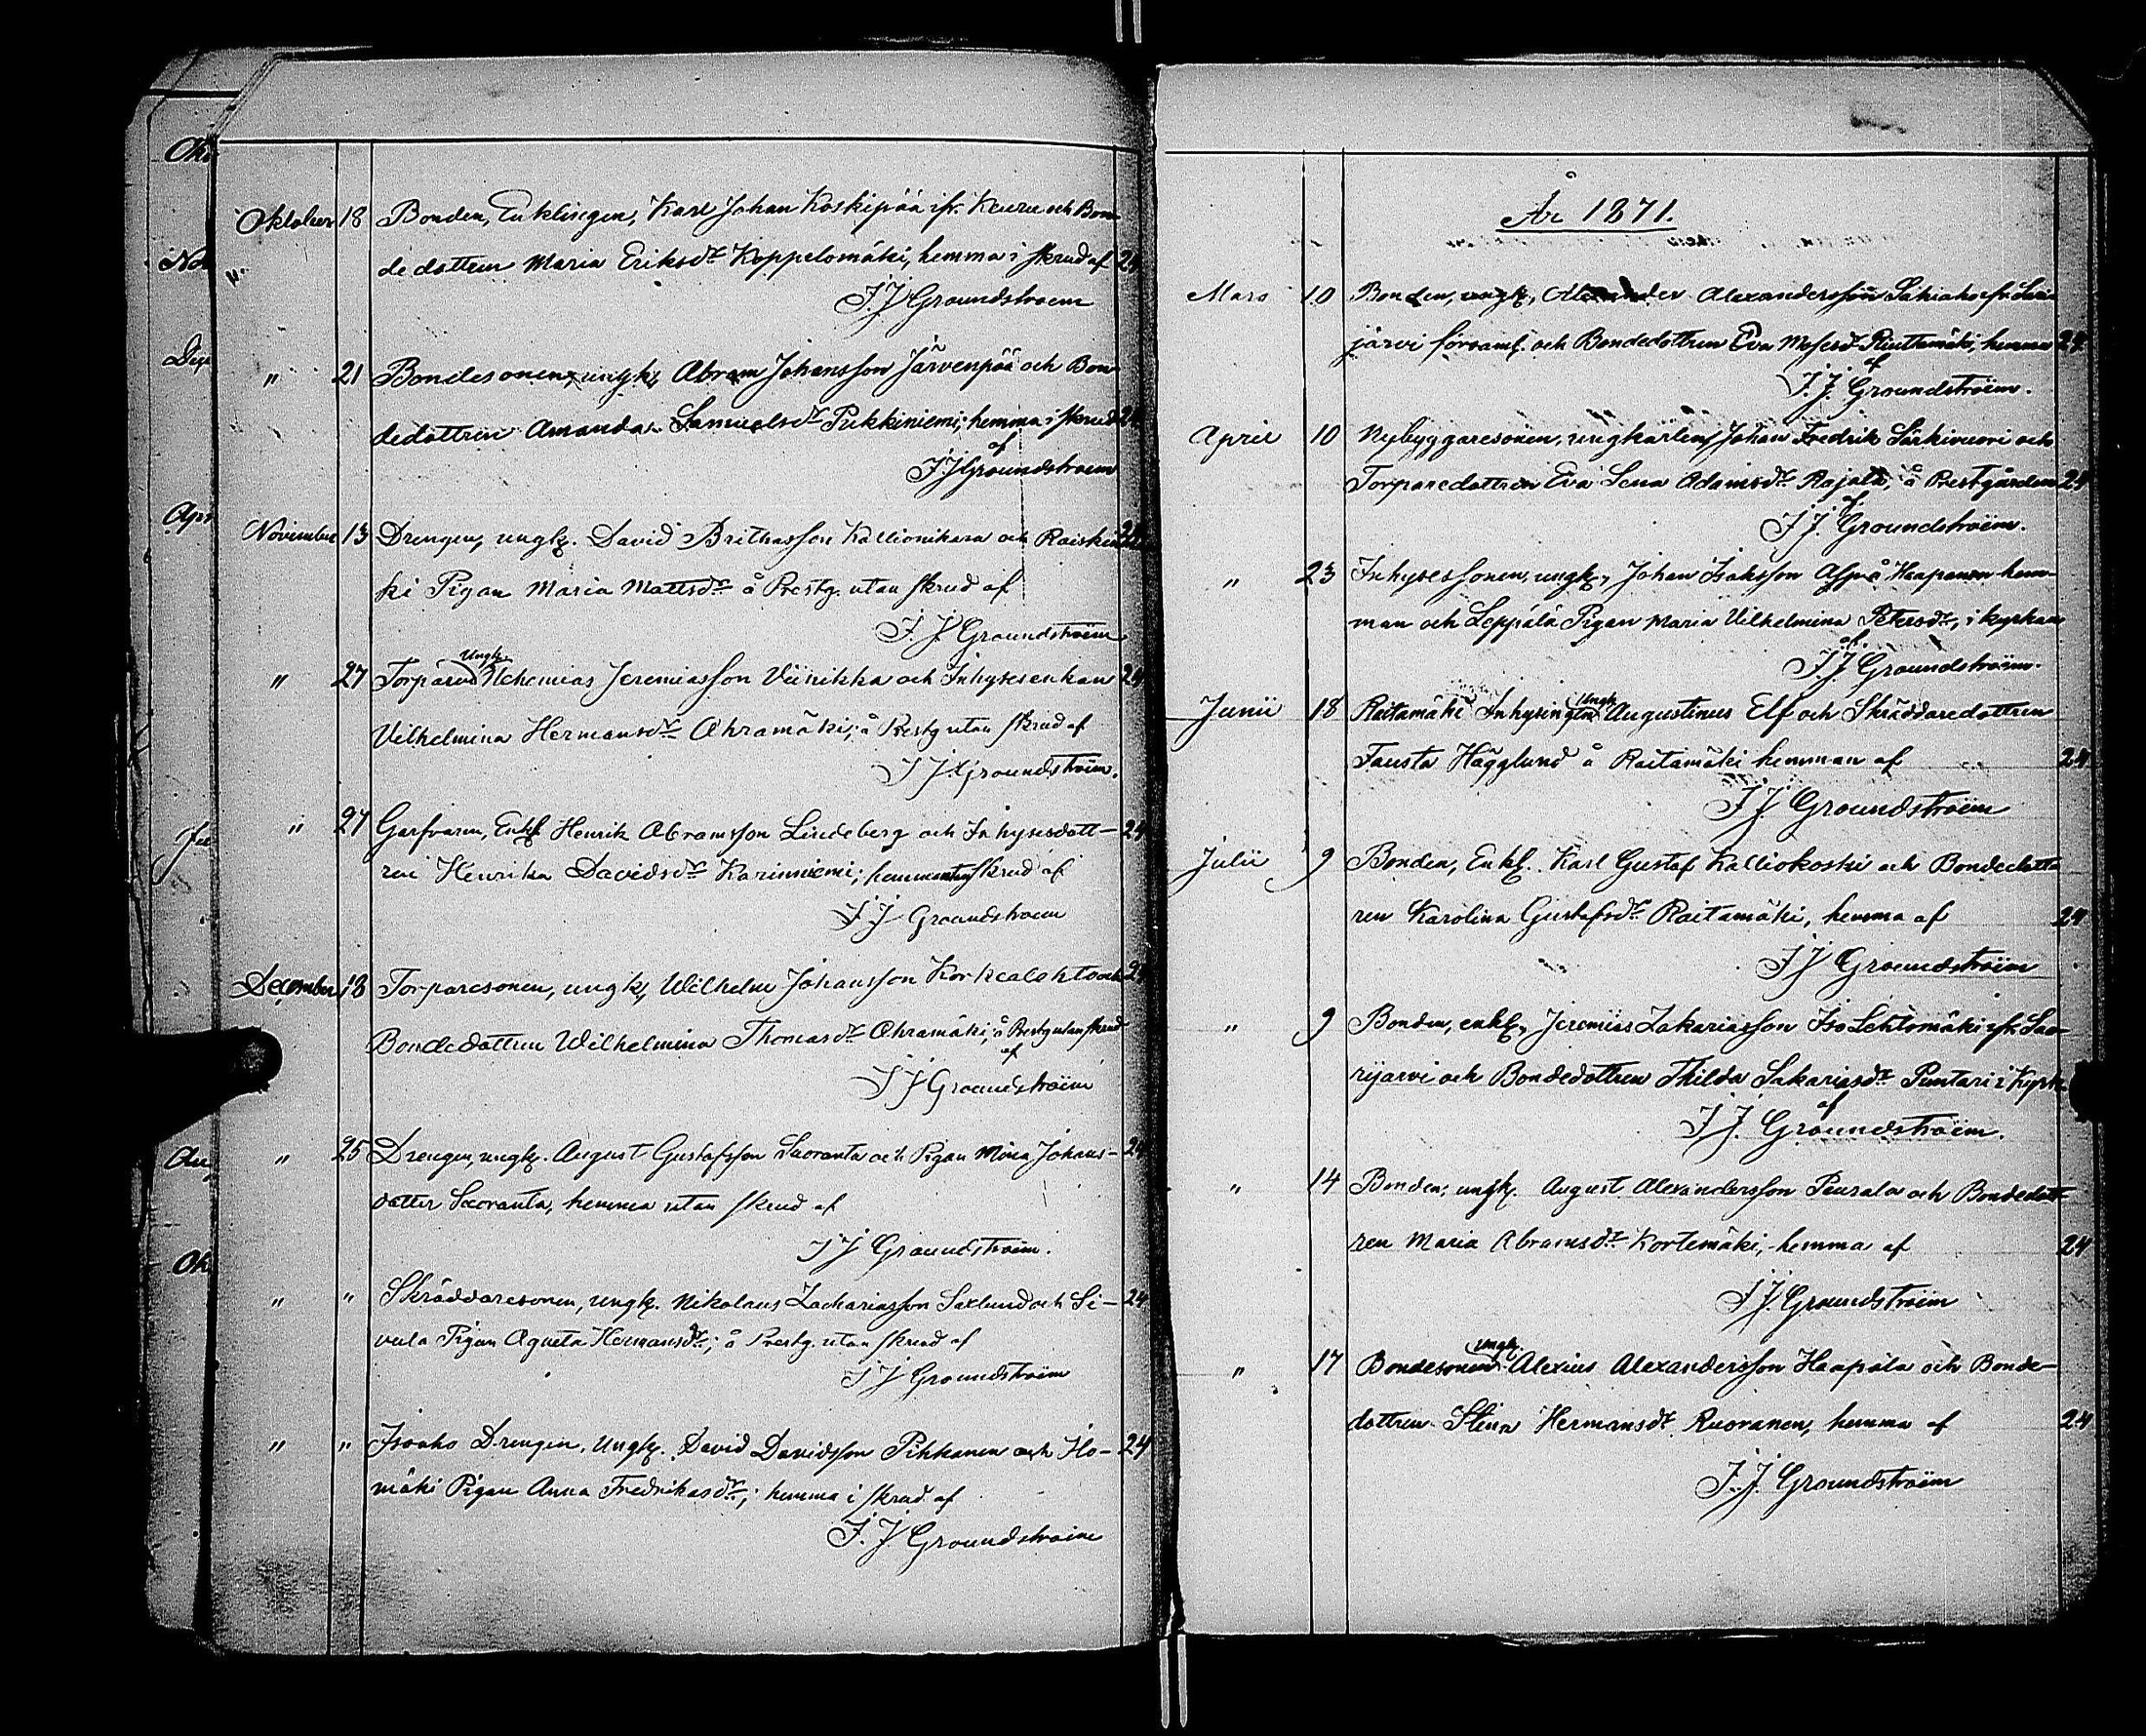 Oktober 18 Bonden, Enklingen, Karl Johan Koskipää ifr. Keuru och Bon-
dedottren Maria Eriksdr Koppelomäki, hemma i skrud af 24
J. J. Groundstroem
" 21 Bondesonen, ungk, Abram Johansson Järvenpää och Bon-
dedottren Amanda Samuelsdr Pukkiniemi; hemma i skrud 24
af
J J Groundstroem
November 13 Drengen, ungk. David Brithasson Kallionikara och Raiskin 24
ki Pigan Maria Mattsdr å Prestg. utan skrud af
J. J Groundström
Ungk.
" 27 Torparen Nehemias Jeremiasson Viinikka och Inhysesenkan 24
Vilhelmina Hermansdr Ahramäki; å Prestg utan skrud af
J J. Groundström.
" 27 Garfvaren, Enkl Henrik Abramsson Lindeberg och Inhysesdott- 24
ren Henrika Davidsdr Kariniemi; hemma utan skrud af
J J Groundstroem
December 18 Torparesonen, ungk, Wilhelm Johansson Korkealehto och 24
Bondedottren Wilhelmina Thomasdr Ahramäki; å Prestg utan skrud
af
J J Groundström
" 25 Drengen, ungk. August Gustafsson Saoranta och Pigan Mina Johans- 24
dotter Saoranta, hemma utan skrud af
J J Groundström.
" " Skräddaresonen, ungk. Nikolaus Zachariasson Saxlund och Si- 24
vula Pigan Agneta Hermansdr; å Prestg. utan skrud af
J J Groundström
" " Isoaho Drengen, Ungk. David Davidsson Pihkanen och Ho- 24
mäki Pigan Anna Fredrikasdr; hemma i skrud af
J. J Groundström
År 1871.
Mars 10 Bonden, ungk, Alexander Alexandersson Sahiaho ifr Saari
järvi församl. och Bondedottren Eva Mosesdr Ruuttamäki, hemma 24
af
J. J. Groundström.
April 10 Nybyggaresonen, ungkarlen, Johan Fredrik Särkivuori och
Torparedottren Eva Lena Adamsdr Rajala, å Prestgården 24
af
J. J. Groundström.
" 23 Inhysessonen, ungk, Johan Isaksson å Haapanen hem-
man och Leppälä Pigan Maria Vilhelmina Petersdr, i kyrkan
af
J. J. Groundström.
Ungk
Junii 18 Raitamäki Inhysingen Augustinus Elf och Skräddaredottren
Fausta Hägglund å Raitamäki hemman af 24
J J Groundström
Julii 9 Bonden, Enkl. Karl Gustaf Kalliokoski och Bondedott
ren Karolina Gustafsdr Raitamäki, hemma af 24
J J Groundström
" 9 Bonden, enkl, Jeremias Zakariasson Iso Lehtomäki ifr. Saa-
rijärvi och Bondedottren Thilda Sakariasdr Puntari i Kyrk
af
J J. Groundström.
" 14 Bonden, ungk. August Alexandersson Peurala och Bondedott
ren Maria Abramsdr Kortemäki, hemma af 24
J J. Groundström
Ungk.
" 17 Bondesonen Alexius Alexandersson Haapala och Bonde-
dottren Stina Hermansdr. Ruoranen, hemma af 24
J. J. Groundström